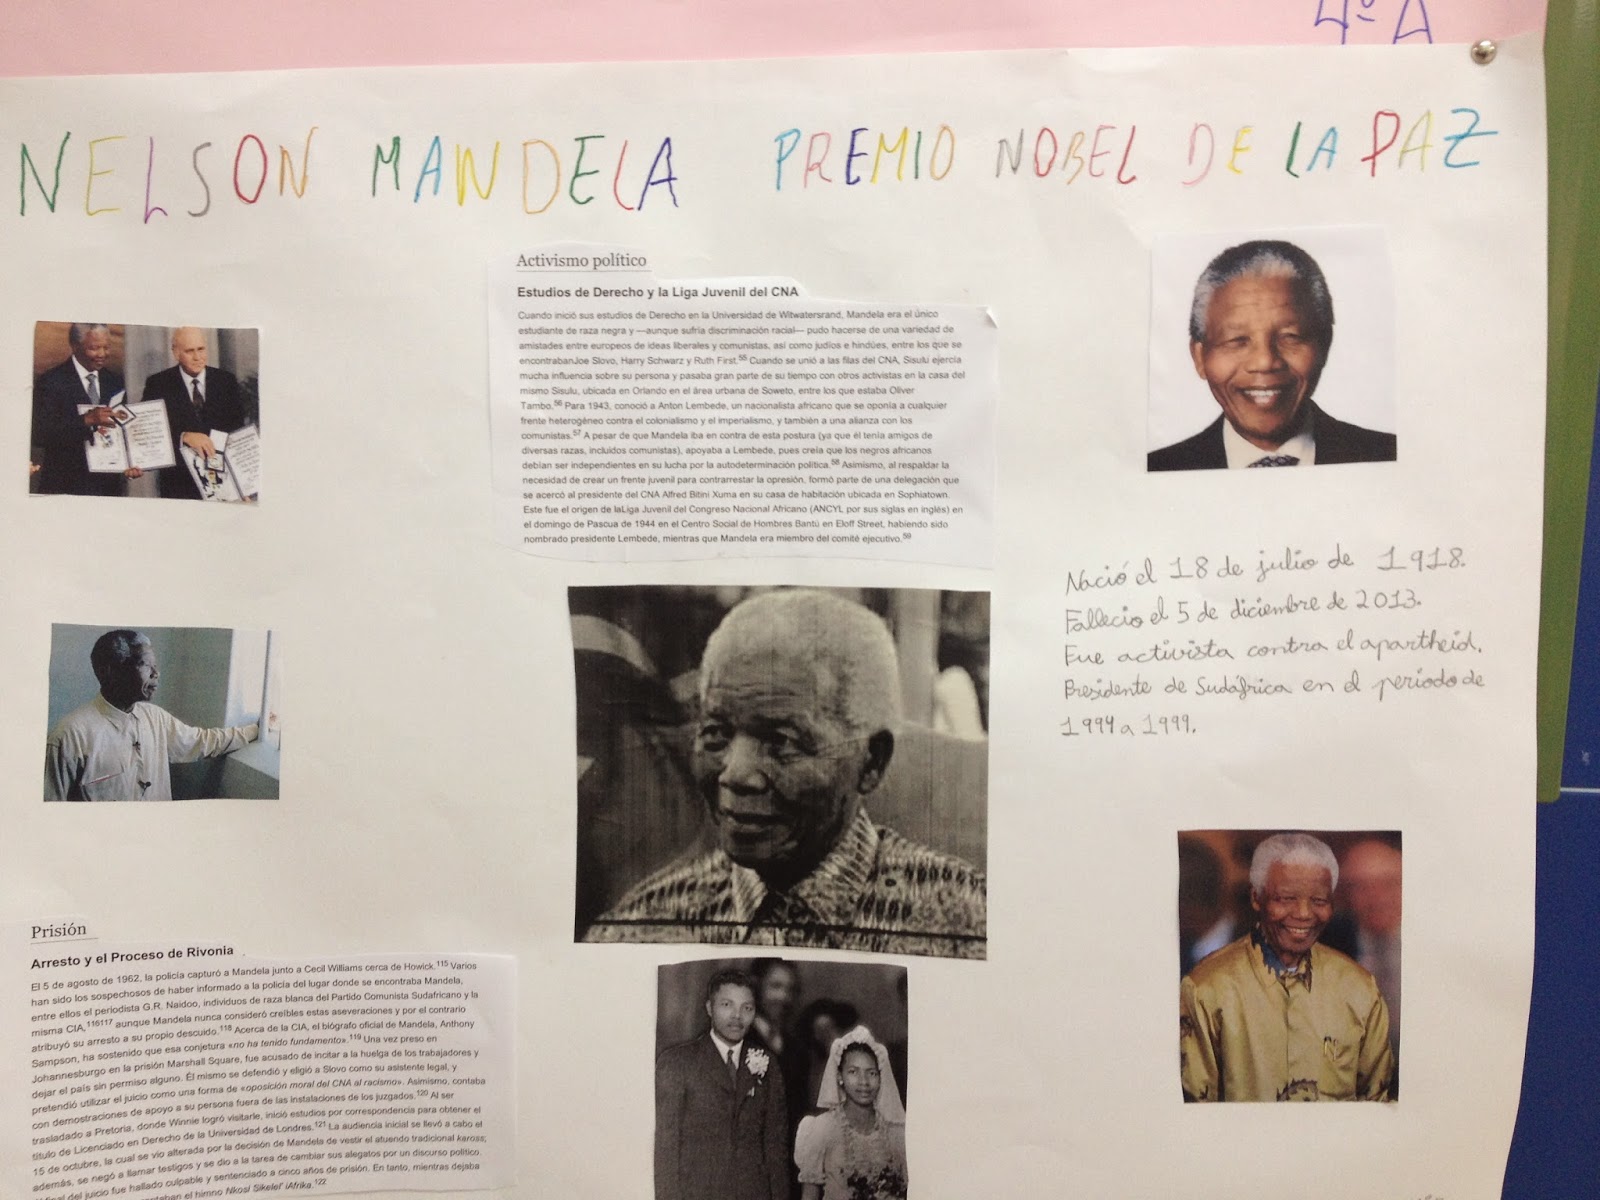 4º A
NELSON MANDELA PREMIO NOBEL DE LA PAZ
Activismo político
Estudios de Derecho y la Liga Juvenil del CNA
Cuando inició sus estudios de Derecho en la Universidad de Witwatersrand, Mandela era el único
estudiante de raza negra y —aunque sufría discriminación racial— pudo hacerse de una variedad de
amistades entre europeos de ideas liberales y comunistas, así como judíos e hindúes, entre los que se
encontrabanJoe Slovo, Harry Schwarz y Ruth First.55 Cuando se unió a las filas del CNA, Sisulu ejercía
mucha influencia sobre su persona y pasaba gran parte de su tiempo con otros activistas en la casa del
mismo Sisulu, ubicada en Orlando en el área urbana de Soweto, entre los que estaba Oliver
Tambo.56 Para 1943, conoció a Anton Lembede, un nacionalista africano que se oponía a cualquier
frente heterogéneo contra el colonialismo y el imperialismo, y también a una alianza con los
comunistas.57 A pesar de que Mandela iba en contra de esta postura (ya que él tenía amigos de
diversas razas, incluidos comunistas), apoyaba a Lembede, pues creía que los negros africanos
debían ser independientes en su lucha por la autodeterminación política.58 Asimismo, al respaldar la
necesidad de crear un frente juvenil para contrarrestar la opresión, formó parte de una delegación que
se acercó al presidente del CNA Alfred Bitini Xuma en su casa de habitación ubicada en Sophiatown.
Este fue el origen de laLiga Juvenil del Congreso Nacional Africano (ANCYL por sus siglas en inglés) en
el domingo de Pascua de 1944 en el Centro Social de Hombres Bantú en Eloff Street, habiendo sido
nombrado presidente Lembede, mientras que Mandela era miembro del comité ejecutivo.59
Nació el 18 de julio de 1918.
Fallecio el 5 de diciembre de 2013.
Fue activista contra el apartheid.
Presidente de Sudáfrica en el periodo de
1994 a 1999.
Prisión
Arresto y el Proceso de Rivonia
El 5 de agosto de 1962, la policía capturó a Mandela junto a Cecil Williams cerca de Howick.115 Varios
han sido los sospechosos de haber informado a la policía del lugar donde se encontraba Mandela,
entre ellos el periodista G.R. Naidoo, individuos de raza blanca del Partido Comunista Sudafricano y la
misma CIA,116117 aunque Mandela nunca consideró creíbles estas aseveraciones y por el contrario
atribuyó su arresto a su propio descuido.118 Acerca de la CIA, el biógrafo oficial de Mandela, Anthony
Sampson, ha sostenido que esa conjetura «no ha tenido fundamento».119 Una vez preso en
Johannesburgo en la prisión Marshall Square, fue acusado de incitar a la huelga de los trabajadores y
dejar el país sin permiso alguno. Él mismo se defendió y eligió a Slovo como su asistente legal, y
pretendió utilizar el juicio como una forma de «oposición moral del CNA al racismo». Asimismo, contaba
con demostraciones de apoyo a su persona fuera de las instalaciones de los juzgados.120 Al ser
trasladado a Pretoria, donde Winnie logró visitarle, inició estudios por correspondencia para obtener el
título de Licenciado en Derecho de la Universidad de Londres.121 La audiencia inicial se llevó a cabo el
15 de octubre, la cual se vio alterada por la decisión de Mandela de vestir el atuendo tradicional kaross;
además, se negó a llamar testigos y se dio a la tarea de cambiar sus alegatos por un discurso político.
final del juicio fue hallado culpable y sentenciado a cinco años de prisión. En tanto, mientras dejaba
el himno Nkosi Sikelel' iAfrika.122